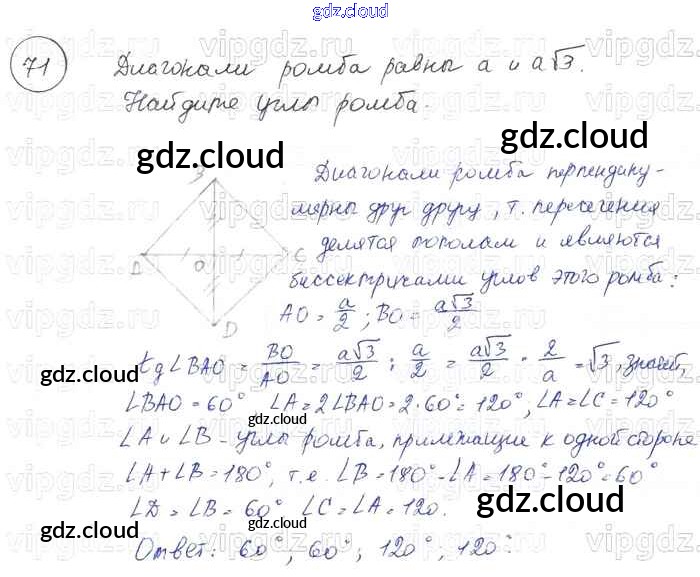 gdz.cloud
71 Диагонали ромба равны a и a√3.
Найдите углы ромба.
gdz.cloud
gdz.cloud
Диагонали ромба перпендику-
лярны друг другу, т. пересечения
делятся пополам и являются
биссектрисами углов этого ромба:
AO = a/2 ; BO = a√3/2
B
D O C
D
tg∠BAO = BO/AO = a√3/2 : a/2 = a√3/2 · 2/a = √3, значит,
gdz.cloud
gdz.cloud
∠BAO = 60° ∠A = 2∠BAO = 2·60° = 120°, ∠A = ∠C = 120°
gdz.cloud
∠A и ∠B - углы ромба, прилежащие к одной стороне
∠A + ∠B = 180°, т.е. ∠B = 180° - ∠A = 180° - 120° = 60°
∠D = ∠B = 60° ∠C = ∠A = 120.
gdz.cloud
gdz.cloud
gdz.cloud
Ответ: 60°; 60°; 120°; 120°.
gdz.cloud
gdz.cloud